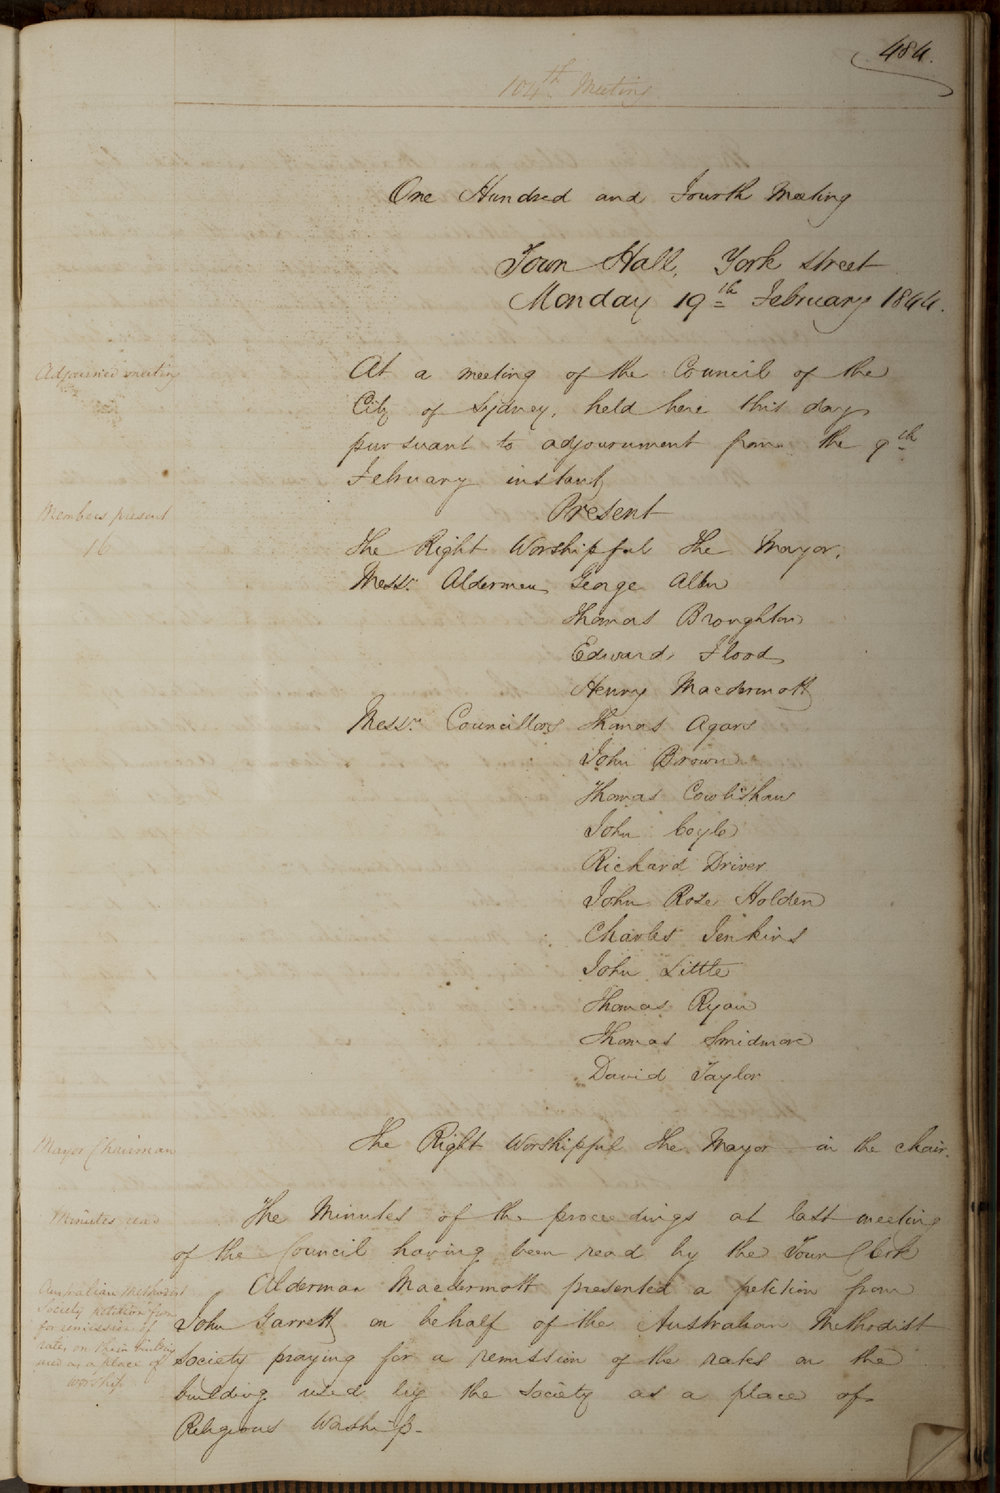 484.
104th Meeting
One Hundred and Fourth Meeting
Town Hall, York Street
Monday 19th February 1844.
Adjourned meeting
At a meeting of the Council of the
City of Sydney, held here this day
pursuant to adjournment from the 9th
February instant
Members present
16
Present
The Right Worshipful The Mayor.
Messrs. Aldermen George Allen
Thomas Broughton
Edward Flood
Henry Macdermott
Messrs. Councillors Thomas Agars
John Brown
Thomas Cowlishaw
John Coyle
Richard Driver
John Rose Holden
Charles Jenkins
John Little
Thomas Ryan
Thomas Smidmore
David Taylor
Mayor Chairman
The Right Worshipful The Mayor in the chair.
Minutes read
The Minutes of the proceedings at last meeting
of the Council having been read by the Town Clerk
Australian Methodist
Society petition from
for remission of
rates on their building
used as a place of
worship
Alderman Macdermott presented a petition from
John Garrett on behalf of the Australian Methodist
Society praying for a remission of the rates on the
building used by the Society as a place of
Religious Worship.